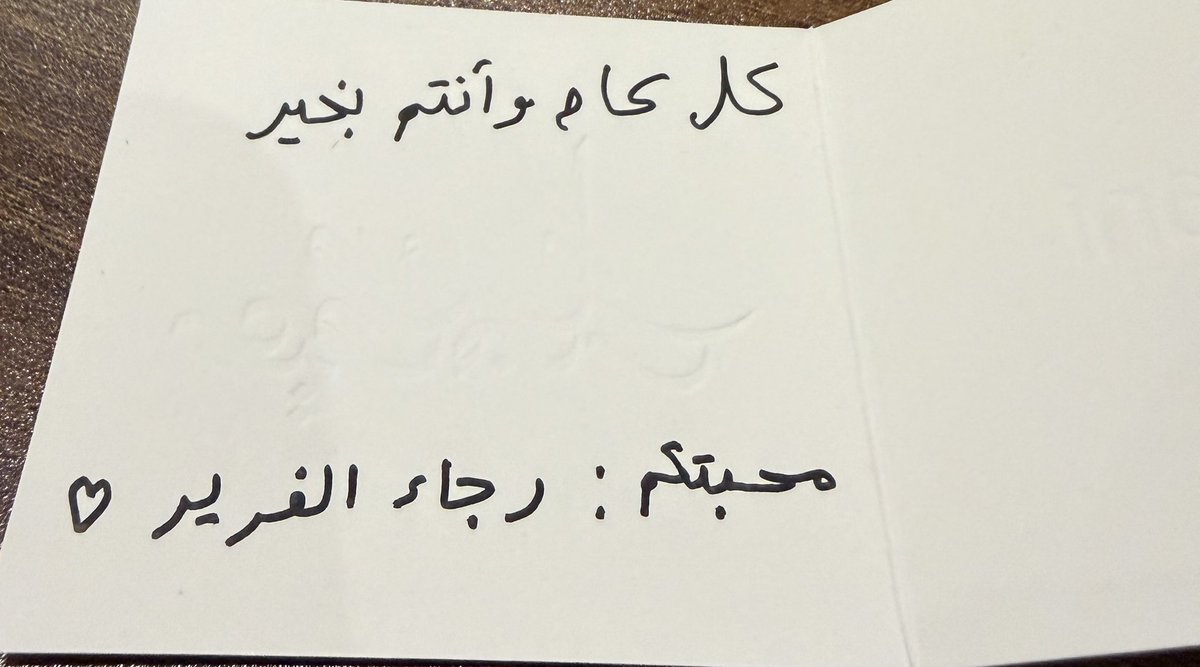 كل عام وأنتم بخير
محبتكم : رجاء الفريد ♡